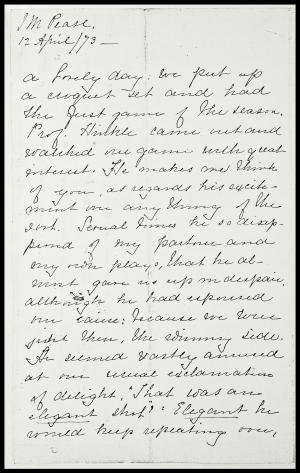 J M Pease.
12 April/73—
a lovely day: we put up
a croquet set and had
the first game of the season.
Prof. Hinkle came out and
watched our game with great
interest. He makes me think
of you, as regards his excite-
ment over any thing of the
sort. Several times he so disap-
proved of my partner and
my own plays, that he al-
most gave us up in despair,
although he had espoused
our cause: because we were
just then, the winning side.
He seemed vastly amused
at our usual exclamation
of delight, "That was an
elegant shot"! "Elegant" he
would keep repeating over,